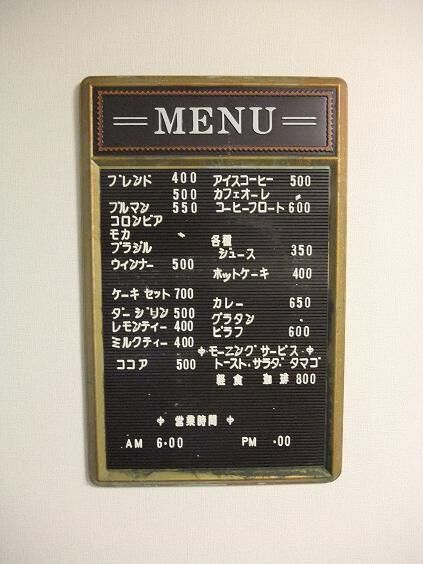 MENU
ブレンド 400
500
ブルマン 550
コロンビア
モカ
ブラジル
ウィンナー 500
ケーキセット 700
ダージリン 500
レモンティー 400
ミルクティー 400
ココア 500
アイスコーヒー 500
カフェオーレ
コーヒーフロート 600
各種
ジュース 350
ホットケーキ 400
カレー 650
グラタン
ピラフ 600
モーニングサービス
トースト・サラダ タマゴ
軽食 珈琲 800
営業時間
AM 6·00 PM ·00